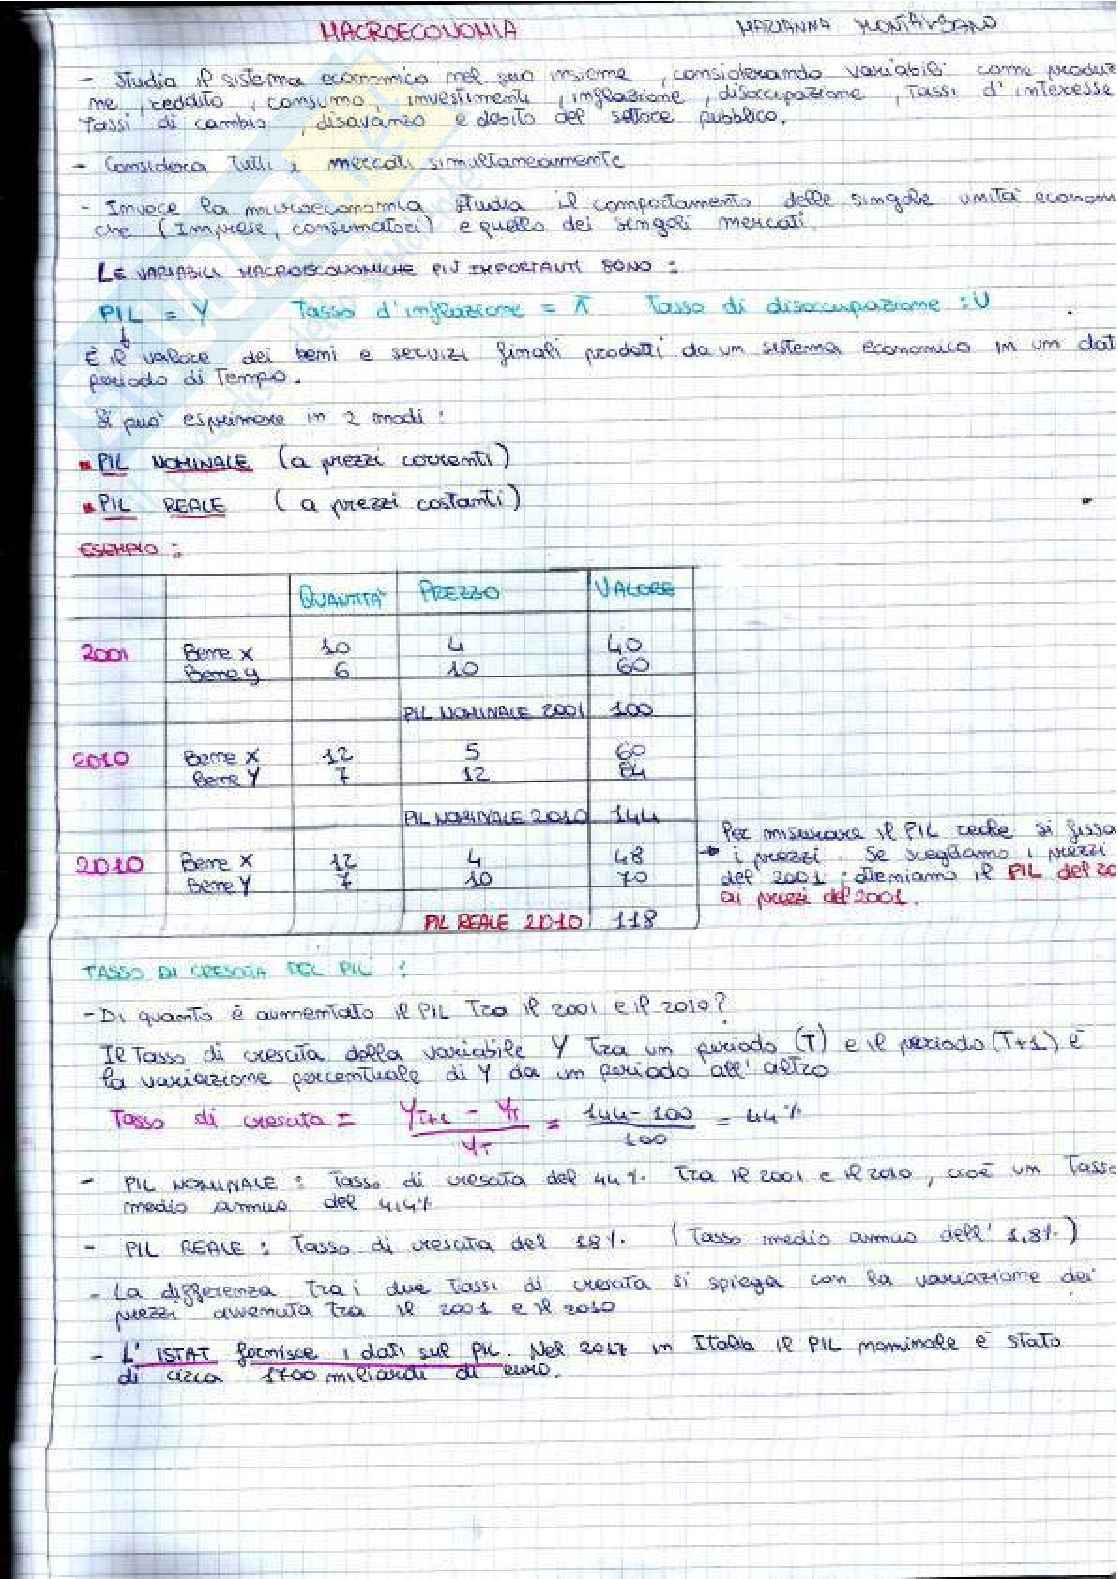 MACROECONOMIA MARIANNA MONTALBANO
- Studia il sistema economico nel suo insieme, considerando variabili come produz
ne, reddito, consumo, investimenti, inflazione, disoccupazione, tassi d'interesse
tassi di cambio, disavanzo e debito del settore pubblico.
- Considera tutti i mercati simultaneamente
- Invece la microeconomia studia il comportamento delle singole unità econom
che (Imprese, consumatori) e quello dei singoli mercati.
LE VARIABILI MACROECONOMICHE PIÙ IMPORTANTI SONO:
PIL = Y Tasso d'inflazione = π Tasso di disoccupazione: U
È il valore dei beni e servizi finali prodotti da un sistema economico in un dat
periodo di tempo.
Si può esprimere in 2 modi:
PIL NOMINALE (a prezzi correnti)
PIL REALE (a prezzi costanti)
ESEMPIO:
QUANTITÀ PREZZO VALORE
2001 Bene x 10 4 40
Bene y 6 10 60
PIL NOMINALE 2001 100
2010 Bene X 12 5 60
Bene Y 7 12 84
PIL NOMINALE 2010 144
2010 Bene X 12 4 48
Bene Y 7 10 70
PIL REALE 2010 118
Per misurare il PIL reale si fissa
→ i prezzi. Se scegliamo i prezzi
del 2001: otteniamo il PIL del 20
ai prezzi del 2001.
TASSO DI CRESCITA DEL PIL:
- Di quanto è aumentato il PIL tra il 2001 e il 2010?
Il tasso di crescita della variabile Y tra un periodo (T) e il periodo (T+1) è
la variazione percentuale di Y da un periodo all'altro
Tasso di crescita = (Y_T+1 - Y_T) / Y_T = (144 - 100) / 100 = 44%
- PIL NOMINALE: Tasso di crescita del 44% tra il 2001 e il 2010, cioè un Tasso
medio annuo del 4,4%
- PIL REALE: Tasso di crescita del 18%. (Tasso medio annuo dell'1,8%)
- La differenza tra i due tassi di crescita si spiega con la variazione dei
prezzi avvenuta tra il 2001 e il 2010
- L'ISTAT fornisce i dati sul PIL. Nel 2017 in Italia il PIL nominale è stato
di circa 1700 miliardi di euro.